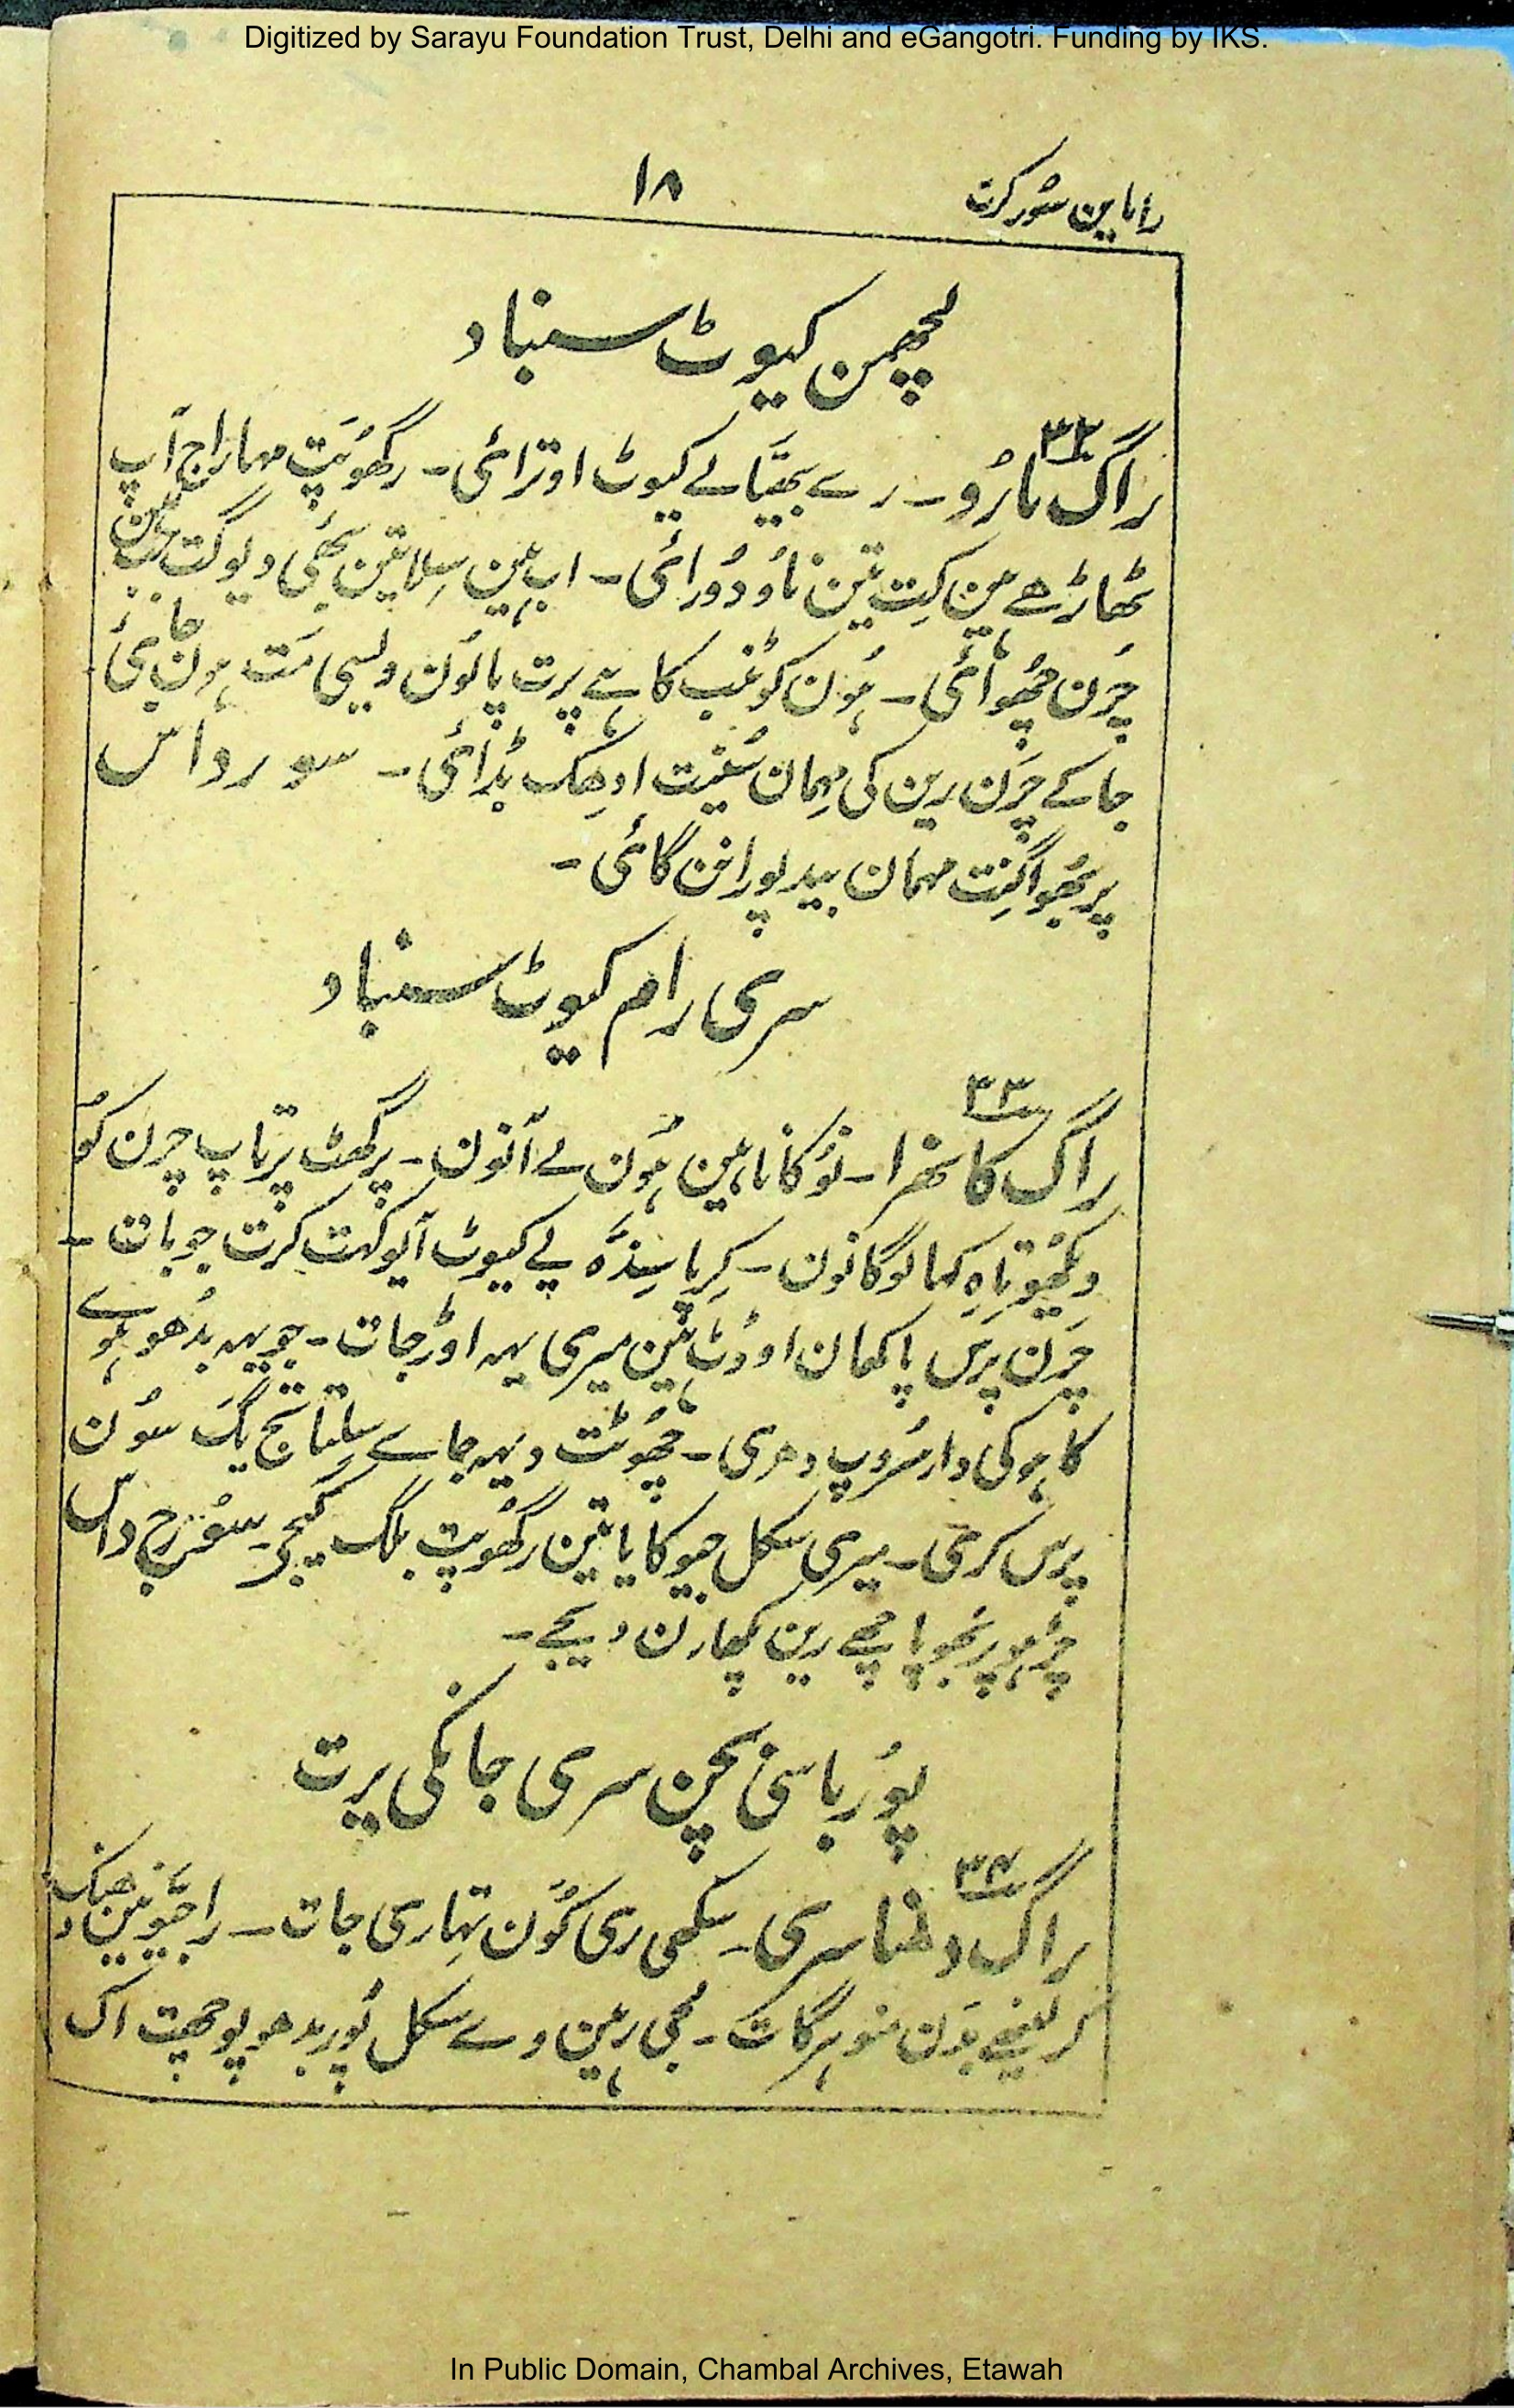 Digitized by Sarayu Foundation Trust, Delhi and eGangotri. Funding by IKS.
راماین سور کرت
۱۸
لچھمن کیوٹ سنباد
۳۲
راگ مارُو ۔ رے بھیّا لے کیوٹ اوترائی ۔ رگھوپَت مہاراج آپ
ٹھاڑھے ہین کِت تین ناؤ دُورائی ۔ اب ہین سِلا تین بھئی دیوگت جب ہین
چَرَن چھُوائی ۔ ہُون کوٹمب کاہے پرت پالون ویسی مَت ہون جائی
جا کے چَرَن رین کی مہمان سُنیت ادھِک بڈائی ۔ سورداس
پربھو اگنِت مہمان بید پورانن گائی ۔
سری رام کیوٹ سنباد
۳۳
راگ کانھرا ۔ نَوکا ناہین ہُون لے آنون ۔ پرگھٹ پرتاپ چرن کو
دیکھیو تاہِ کہا لوگانون ۔ کِرپا سِندَہ پے کیوٹ آیو کہت کرت جو بات ۔
چَرَن پرس پاکھان اوڈت ہین میری یہہ اوڑجات ۔ جو یہہ بدھو ہوے
کاہو کی دار سُروپ دھری ۔ چھوٹت دیہہ جاے سلتا تج پگ سون
پرس کری ۔ میری سکل جیوکا یا تین رگھوپت مکت کیجے ۔ سورج داس
چڑھو پربھو پاچھے رین پکھارن دیجے ۔
پُور باسی بچن سری جانکی پرت
۳۴
راگ دھناسری ۔ سکھی ری کون تہاری جات ۔ راجیونین دھنک
کر لینھے بدن منوہر گات ۔ لجی رہین وے سکل پُوربدھو پوچھت اک
In Public Domain, Chambal Archives, Etawah